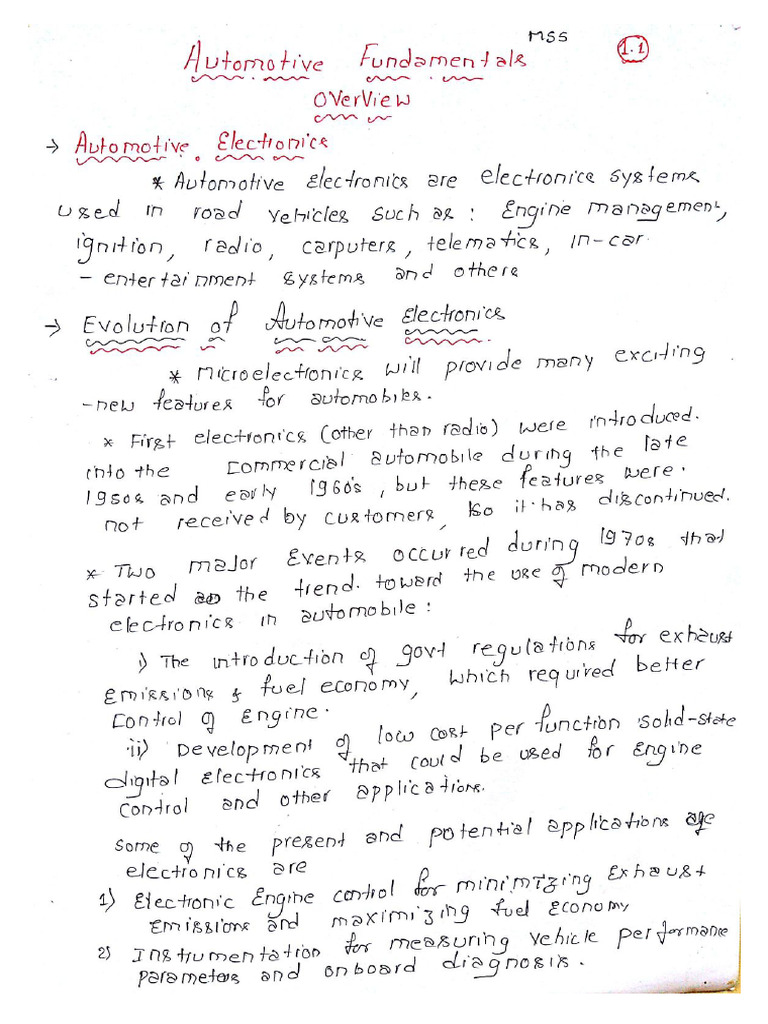 MSS
1.1
Automotive Fundamentals
Overview
→ Automotive Electronics
* Automotive electronics are electronics systems
used in road vehicles such as: Engine management,
ignition, radio, carputers, telematics, in-car
- entertainment systems and others
→ Evolution of Automotive Electronics
* Microelectronics will provide many exciting
-new features for automobiles.
* First electronics (other than radio) were introduced.
into the commercial automobile during the late
1950s and early 1960's, but these features were.
not received by customers, so it has discontinued.
* Two major Events occurred during 1970s that
started the trend. toward the use of modern
electronics in automobile:
i) The introduction of govt regulations for exhaust
Emissions & fuel economy, which required better
control of engine.
ii) Development of low cost per function solid-state
digital electronics that could be used for Engine
control and other applications.
Some of the present and potential applications of
electronics are
1) Electronic Engine control for minimizing Exhaust
Emissions and maximizing fuel Economy
2) Instrumentation for measuring vehicle performance
parameters and onboard diagnosis.